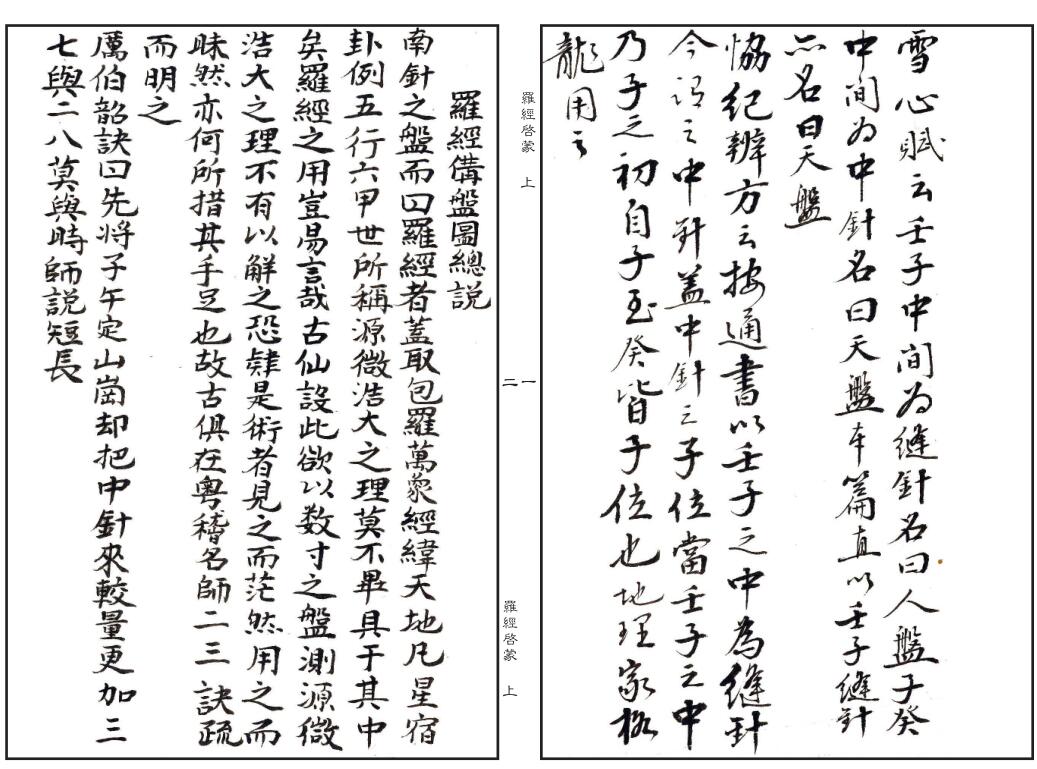 雪心賦云壬子中間为縫針名曰人盤子癸
中間为中針名曰天盤本篇直以壬子縫針
亦名曰天盤
恊紀辨方云按通書以壬子之中為縫針
今謂之中針蓋中針之子位當壬子之中
乃子之初自子至癸皆子位也地理家格
龍用之
羅經啓蒙 上
一
二
羅經啓蒙 上
羅經備盤圖總説
南針之盤而曰羅經者蓋取包羅萬象經緯天地凡星宿
卦例五行六甲世所稱源微浩大之理莫不畢具于其中
矣羅經之用豈易言哉古仙設此欲以数寸之盤測源微
浩大之理不有以解之恐肄是術者見之而茫然用之而
昧然亦何所措其手足也故古俱在粤稽名師二三訣疏
而明之
厲伯韶訣曰先將子午定山崗却把中針來較量更加三
七與二八莫與時師説短長